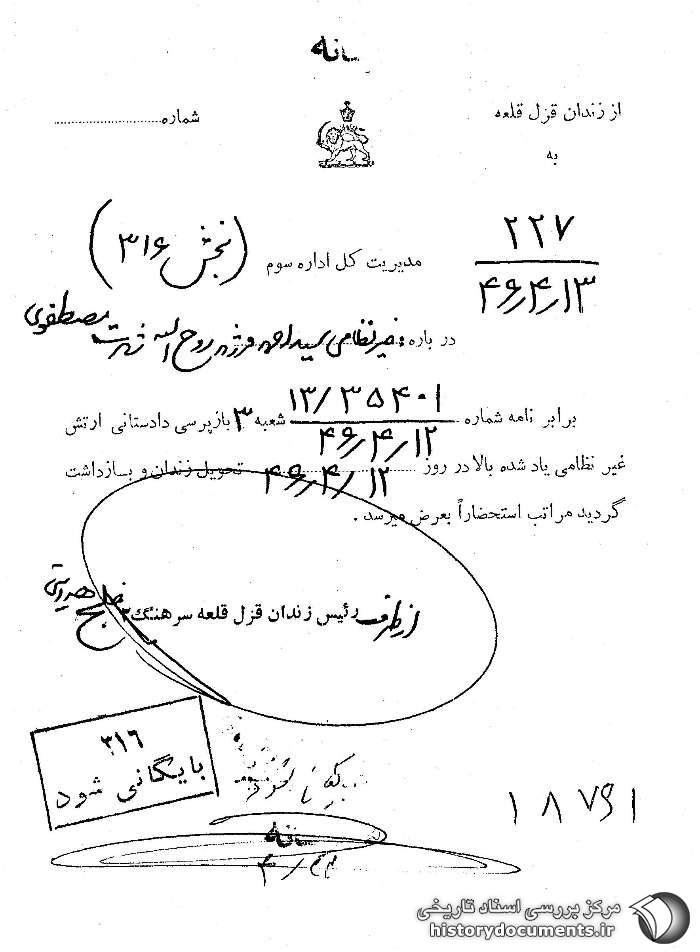 از زندان قزل قلعه
شماره
به
۲۲۷
۴۶/۴/۱۳
مدیریت کل اداره سوم (بخش ۳۱۶)
در باره: غیرنظامی سید احمد فرزند روح اله شهرت مصطفوی
برابر نامه شماره ۱۳/۳۵۴۰۱ شعبه ۳ بازپرسی دادستانی ارتش
۴۶/۴/۱۲
غیر نظامی یاد شده بالا در روز ۴۶/۴/۱۲ تحویل زندان و بازداشت
گردید مراتب استحضاراً بعرض میرسد.
از طرف رئیس زندان قزل قلعه سرهنگ ۲
۳۱۶
بایگانی شود
۱۸۷۶۱
مرکز بررسی اسناد تاریخی
historydocuments.ir